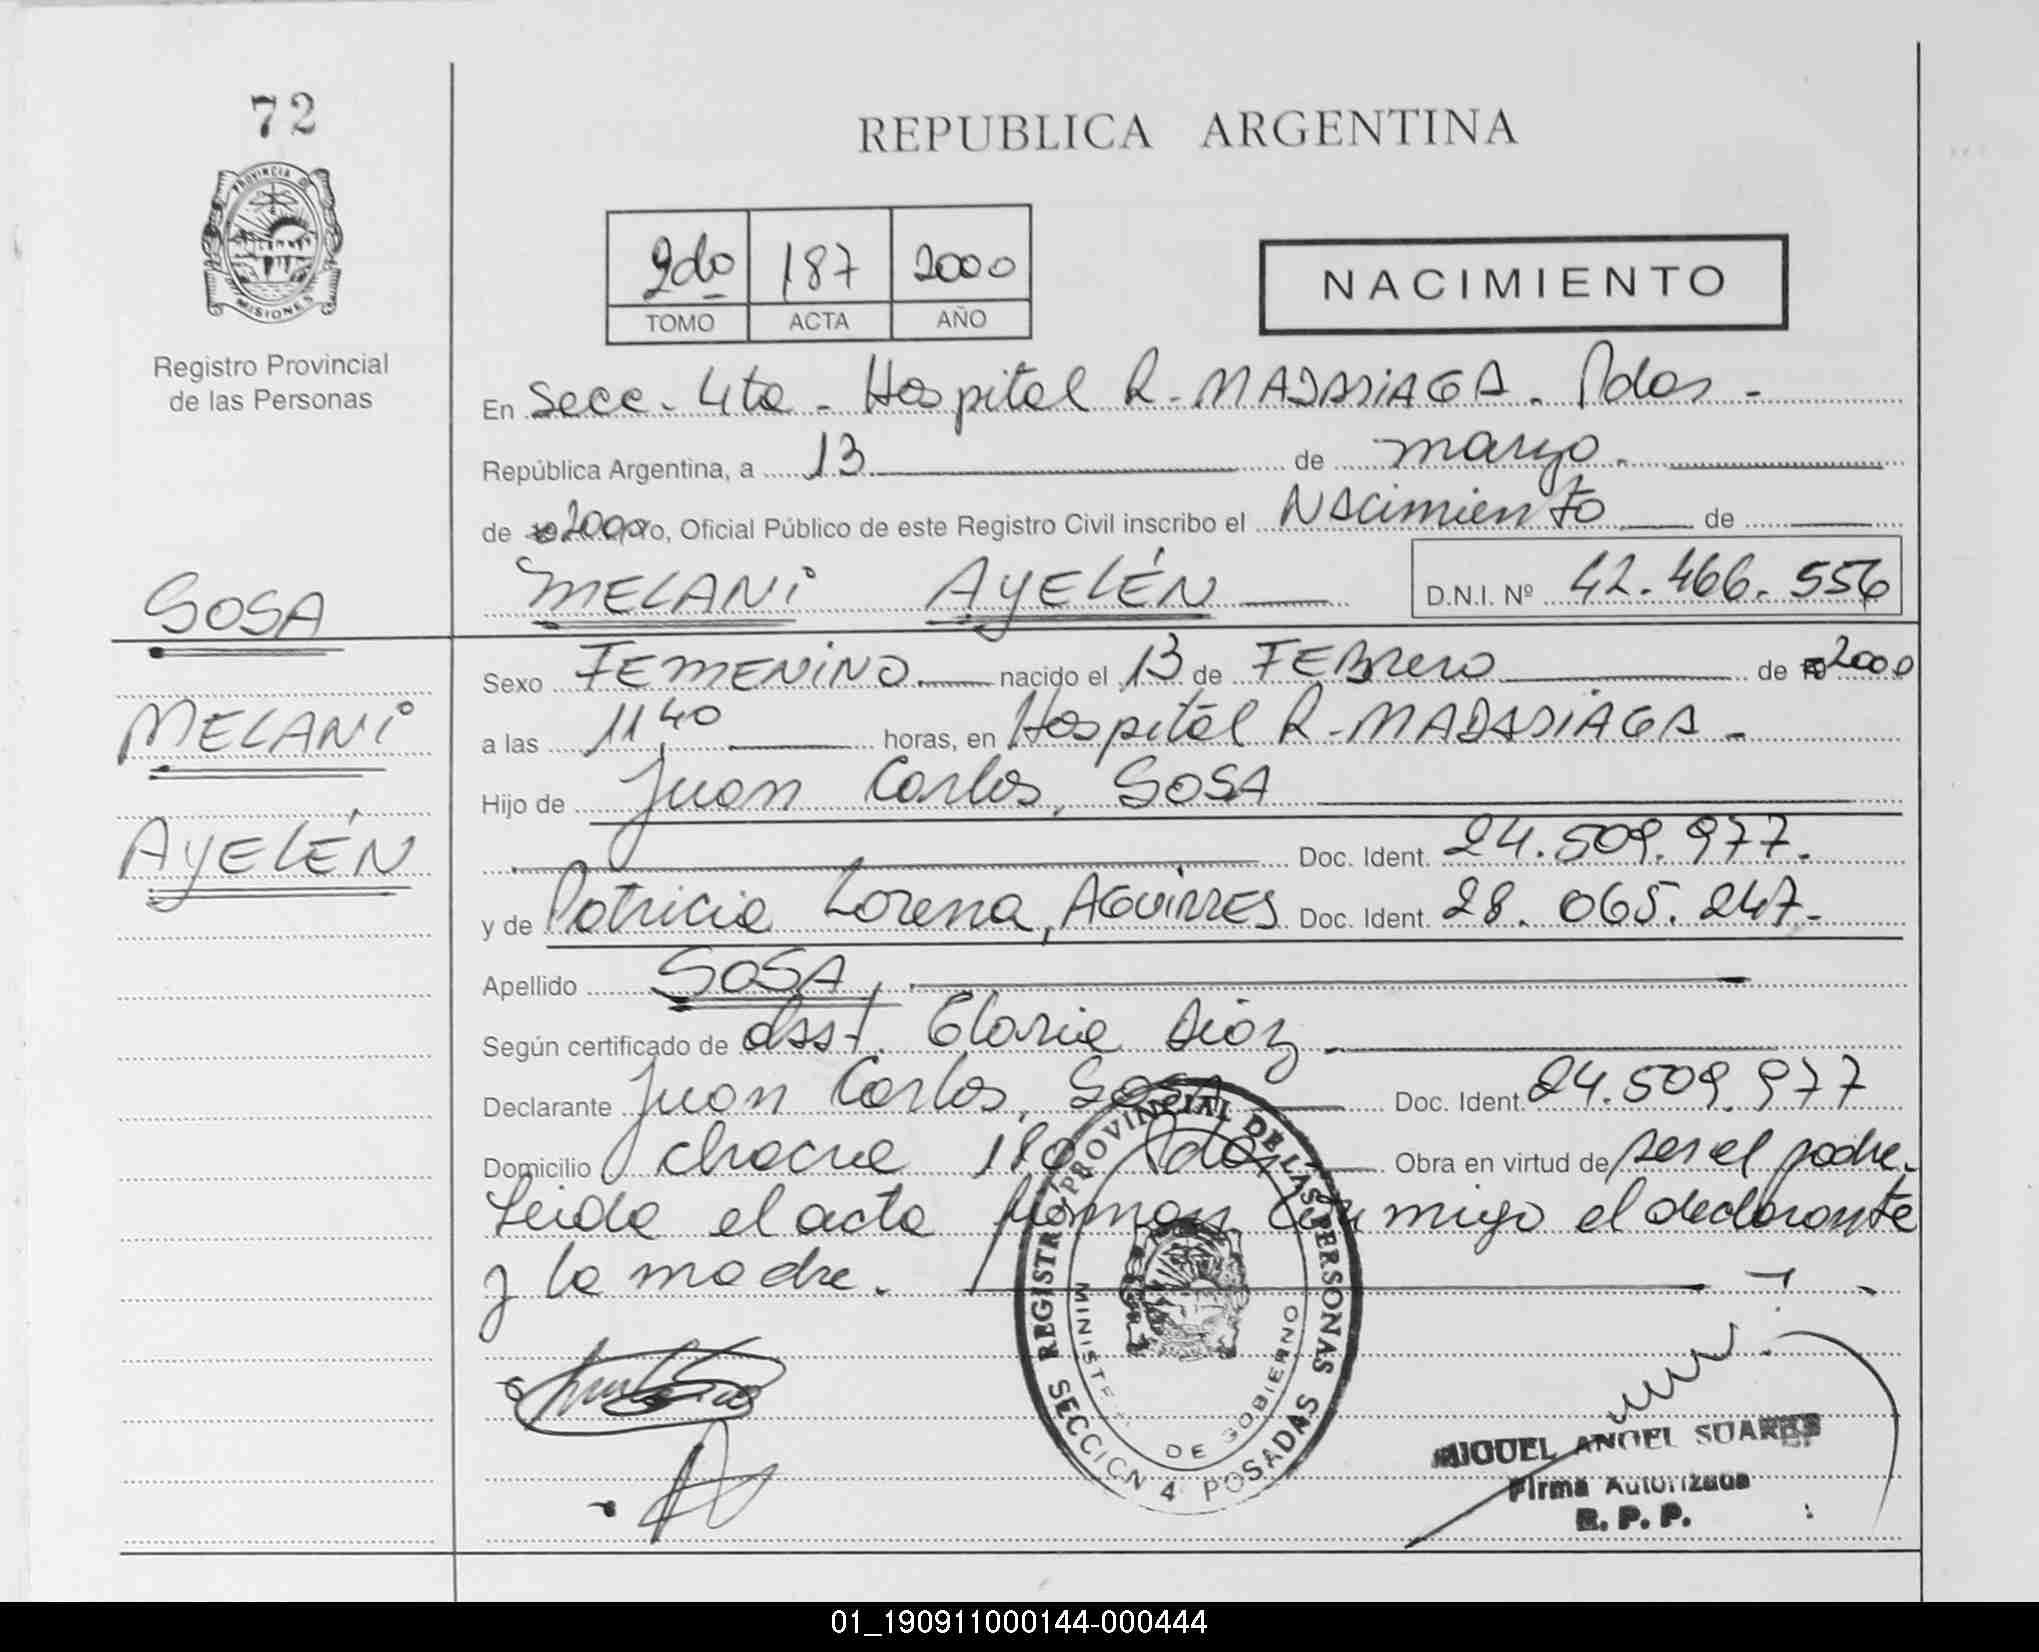 72
REPUBLICA ARGENTINA
PROVINCIA DE
MISIONES
Registro Provincial
de las Personas
2do 187 2000
TOMO ACTA AÑO
NACIMIENTO
En Secc. 4ta - Hospital R. MADARIAGA. Pdas -
República Argentina, a 13 de marzo.
de 2000 o, Oficial Público de este Registro Civil inscribo el Nacimiento de
MELANi AYELÉN D.N.I. Nº 42.466.556
SOSA
MELANi
AYELÉN
Sexo FEMENINO nacido el 13 de FEBrero de 2000
a las 11,40 horas, en Hospital R. MADARIAGA -
Hijo de Juan Carlos, SOSA
Doc. Ident. 24.509.977.
y de Patricia Lorena, AGUIRRES Doc. Ident. 28.065.247.
Apellido SOSA,
Según certificado de Obst. Gloria Dioz -
Declarante Juan Carlos, SOSA Doc. Ident. 24.509.977
Domicilio chacra 180 Pdas Obra en virtud de ser el padre.
Leida el acta firman conmigo el declarante
y la madre.
REGISTRO PROVINCIAL DE LAS PERSONAS
MINISTERIO DE GOBIERNO
SECCION 4 POSADAS
MIGUEL ANGEL SUARES
Firma Autorizada
R. P. P.
01_190911000144-000444